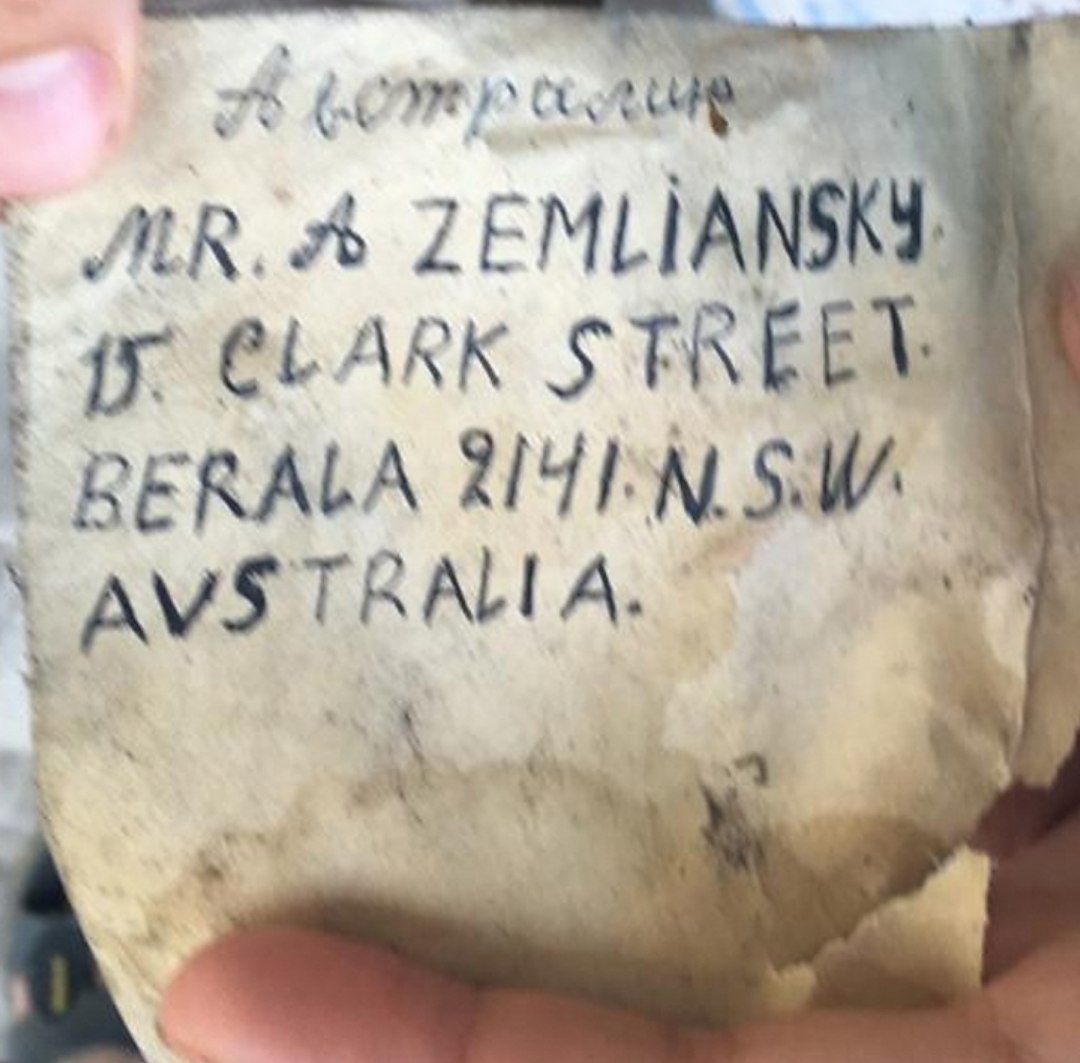 Австралию
MR. A ZEMLIANSKY.
15. CLARK STREET.
BERALA 2141. N.S.W.
AVSTRALIA.